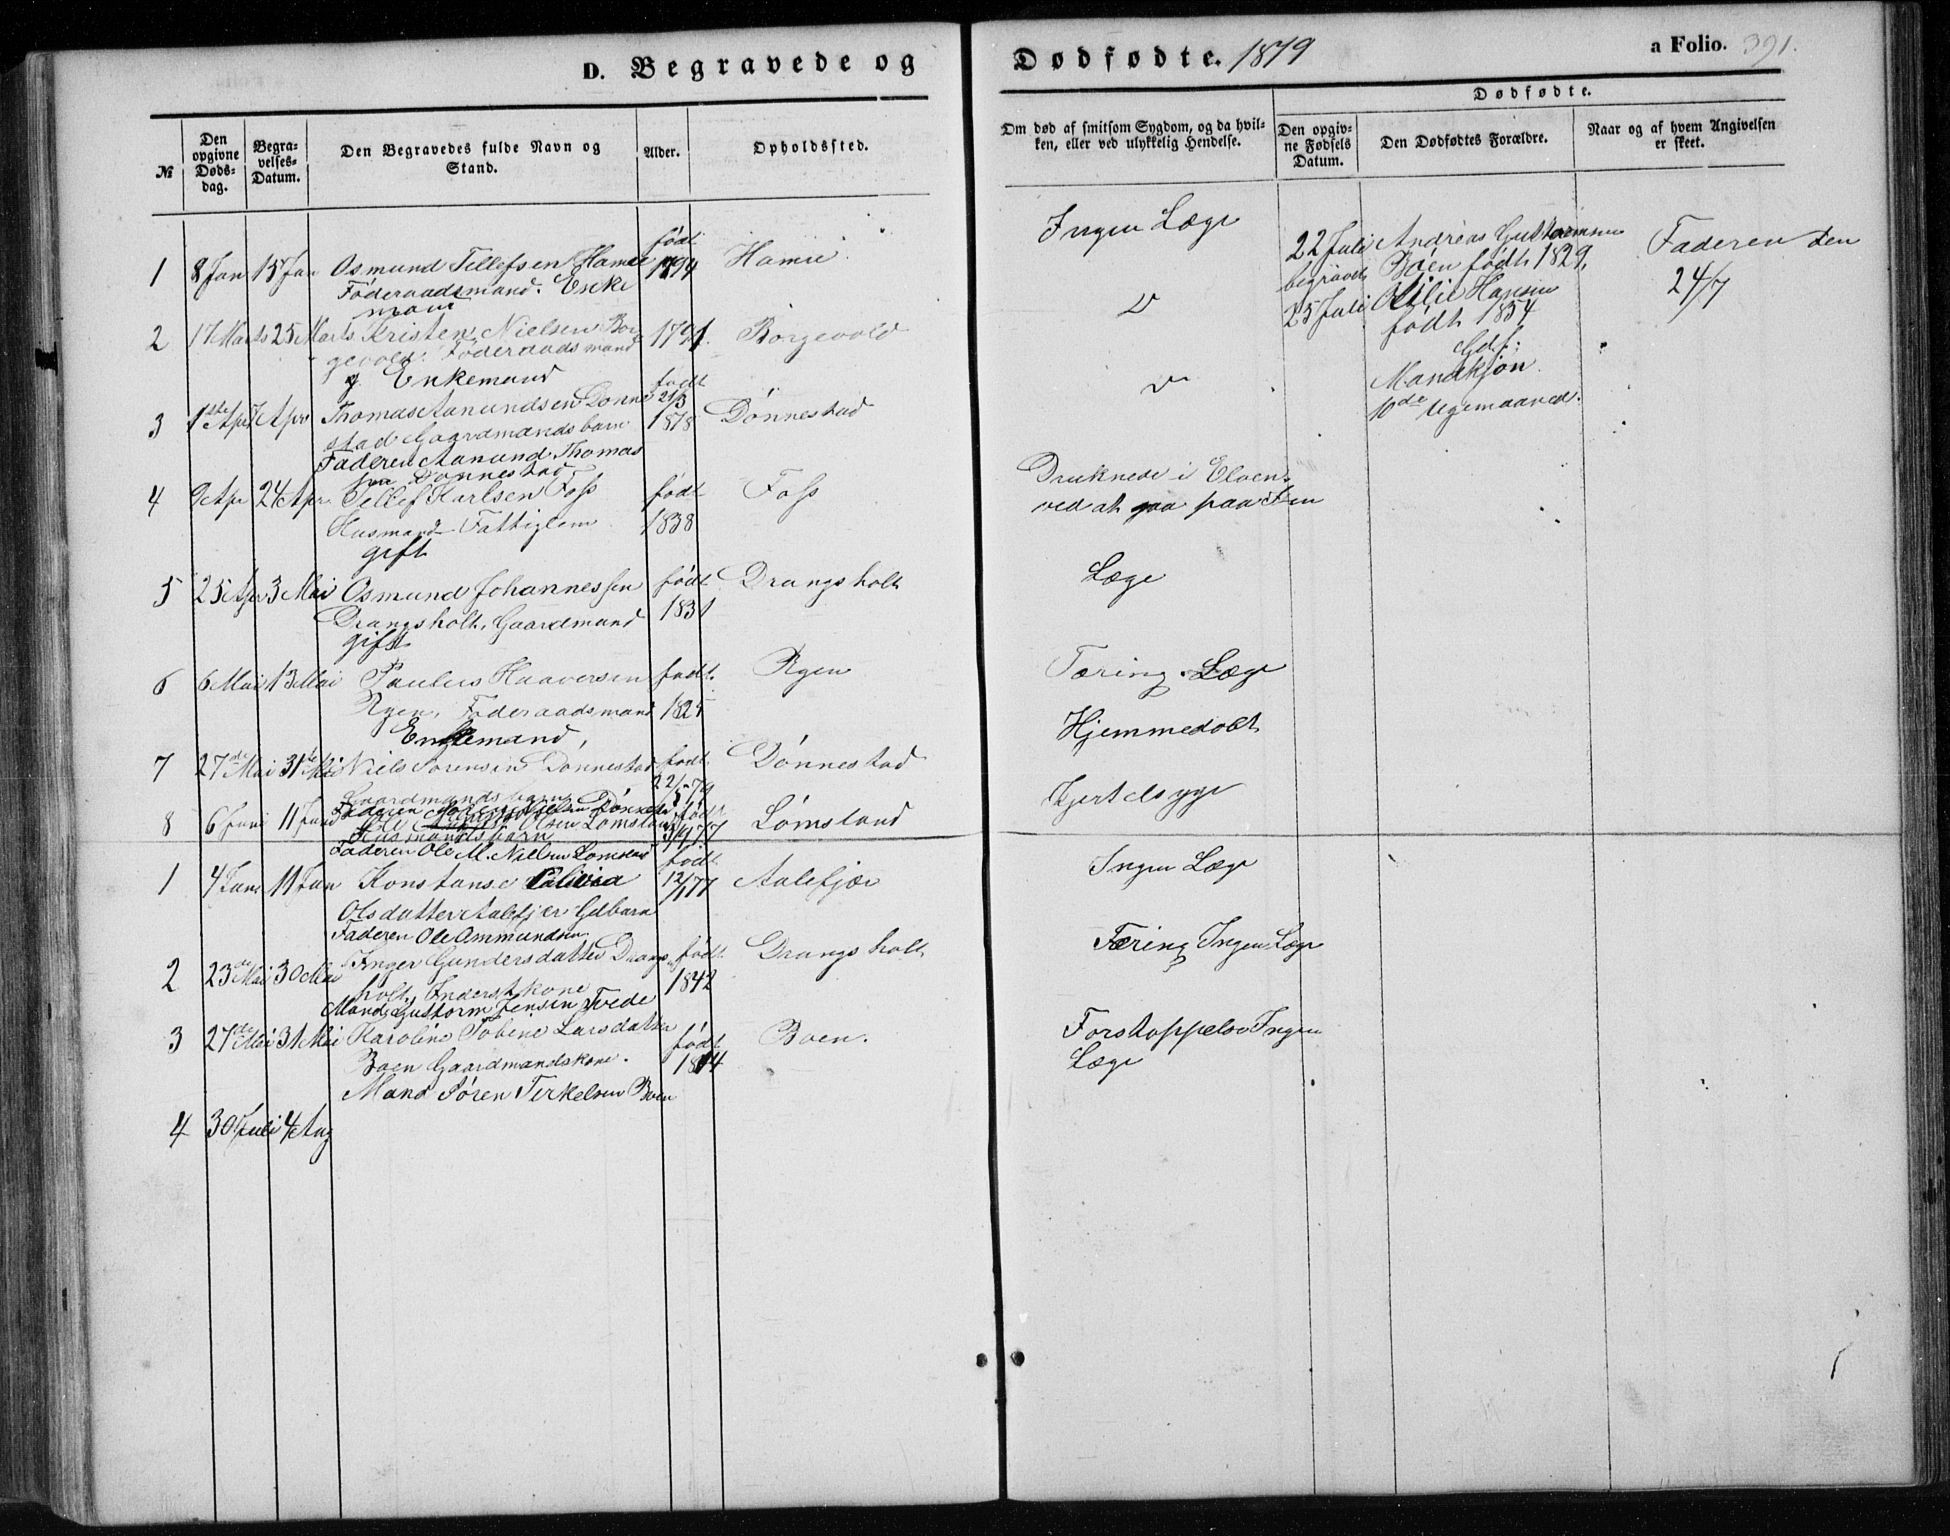 D. Begravede og Dødfødte. 1879
a Folio. 391.
№
Den opgivne Døds-dag.
Begra-velses-Datum.
Den Begravedes fulde Navn og Stand.
Alder.
Opholdssted.
Om død af smitsom Sygdom, og da hvil-ken, eller ved ulykkelig Hendelse.
Dødfødte.
Den opgiv-ne Fødsels Datum.
Den Dødfødtes Forældre.
Naar og af hvem Angivelsen er skeet.
1 8 Jan 15 Jan Osmund Tellefsen Hamre født 1794 Hamre Ingen Læge
Føderaadsmand. Enke
mand
22 Juli Andreas Guttormsen Faderen den
begravet Boen født 1829, 24/7
25 Juli Hansen
født 1854
Gdf.
Mandkjøn
10de Ugemaaned.
2 17 Marts 25 Marts Kristen Nielsen Bor 1791. Borgevold v
gevold. Føderaadsmand
g Enkemand
3 1ste Apr 7 Apr Thomas Aanundsen Dønne født 21/3 1878 Dønnestad v
stad Gaardmandsbarn
Faderen Aanund Thomas
sen Dønnestad
4 9 Apr 24 Apr Tellef Karlsen Foss født 1838 Foss Druknede i Elven
Husmand Fattiglem ved at gaa paa
gift
5 25 Apr 3 Mai Osmund Johannessen født 1831 Drangsholt Læge
Drangsholt, Gaardmand
gift
6 6 Mai 13 Mai Paulus Haaversen født 1825 Rygen Tæring. Læge
Rygen, Føderaadsmand
Enkemand,
7 27de Mai 31te Mai Niels Sørensen Dønnestad født 22/5 79 Dønnestad Hjemmedøbt
Gaardmandsbarn
Faderen Søren Nielsen Dønnestad
8 6 Juni 11 Juni Ole Olsen Lømsland født 3/9 77 Lømsland Kjertelsyge
Husmandsbarn
Faderen Ole M. Nielsen Lømsland
1 4 Jan 11 Jan Konstanse Olivia født 12/1 77 Aalefjær Ingen Læge
Olsdatter Aalefjær Gdbarn
Faderen Ole Ommundsen
2 23de Mai 30 Mai Inger Gundersdatter Drangs født 1842 Drangsholt Tæring Ingen Læge
holt, Inderstkone
Mand, Guttorm Jensen Tvede
3 27de Mai 31 Mai Karoline Tobine Larsdatter født 1844 Boen. Forstoppelse Ingen
Boen Gaardmandskone. Læge
Mand Søren Terkelsen Boen
4 30 Juli 4 Aug